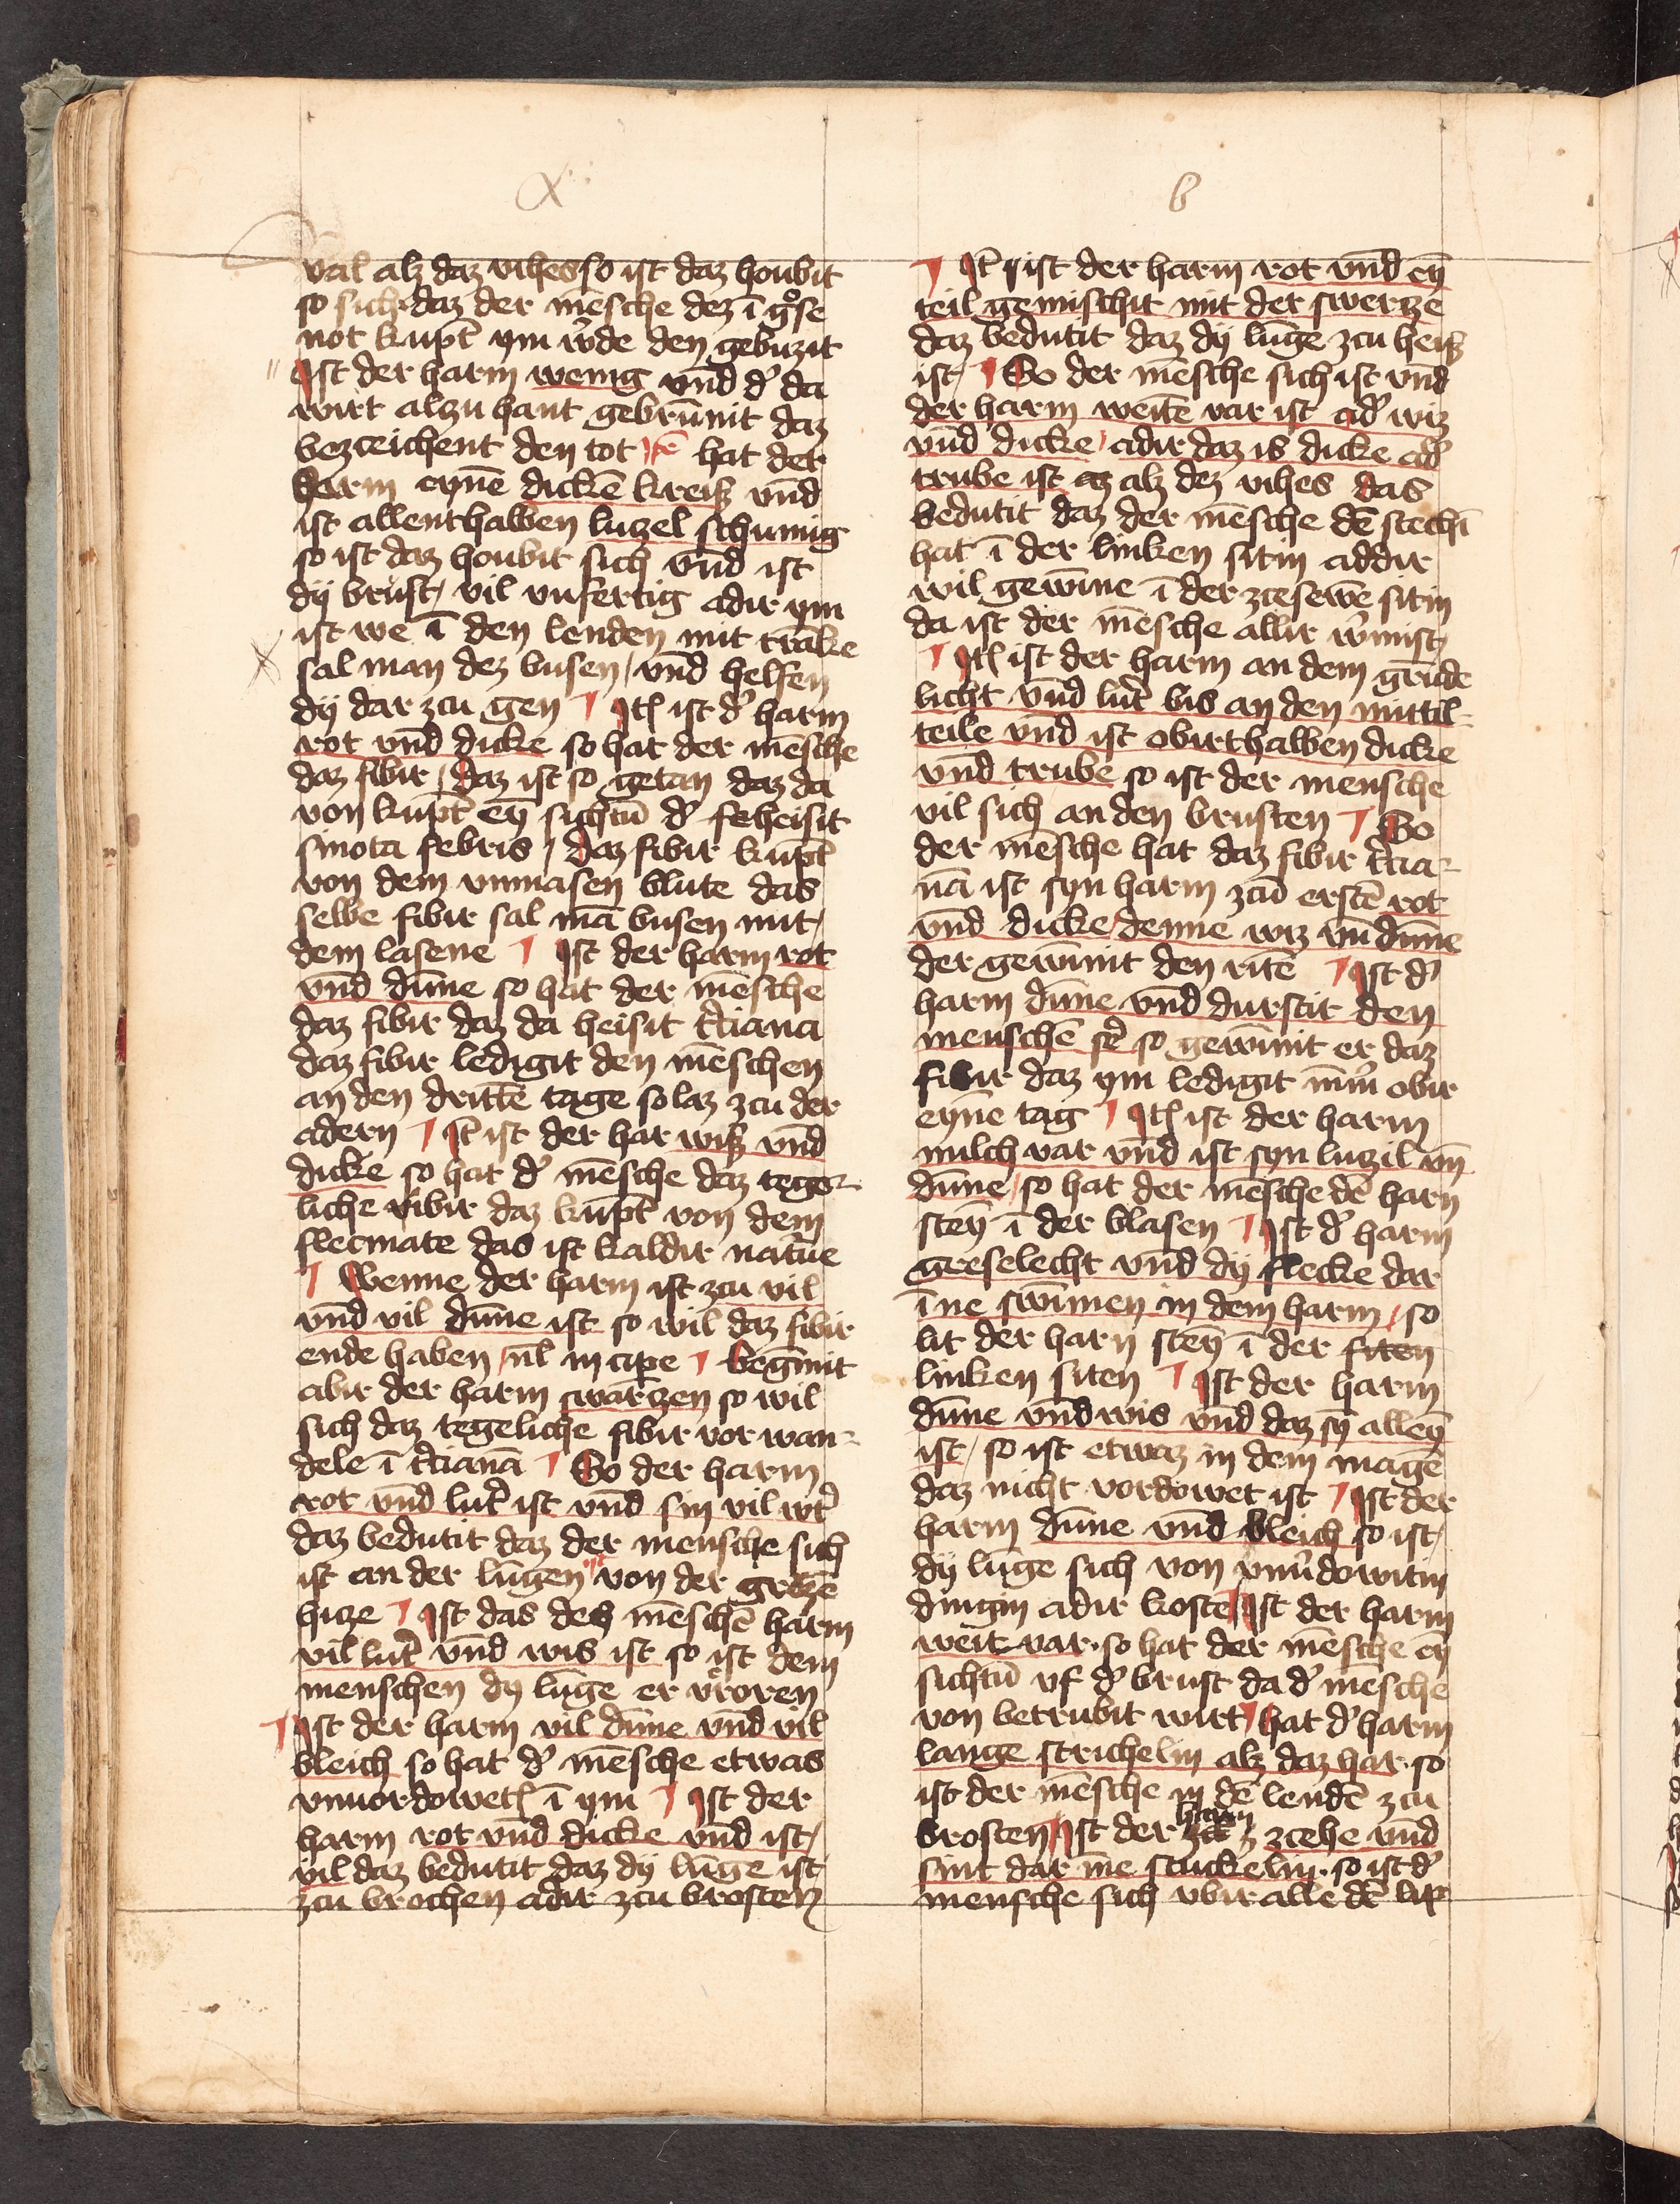 a
val alz daz vihes so ist daz houbit
so sich daz der mēsche dez ī gͦse
not kupt ym w̾de den gebuzit
Ist der harm wenig vnd d̾ da
wirt alzu hant gebrūnit daz
bezceichent den tot hat der
harm eynē dickē kreisz vnd
ist allenthalben luzel schumig
so ist daz houbit sich vnd ist
dy brust / vil vnfertig adir ym
ist we ī den lenden mit trāke
sal man dez busen / vnd helfen
dy dar zcu gen ¶ Itē ist d̾ harm
rot vnd dicke so hat der mēsche
daz fibir / daz ist so getan daz da
von kupt ey sichtū d̾ heisit
sinota febris / daz fibir kupt
von dem vnmasen blute das
selbe fibir sal mā busen mit /
dem lasene ¶ Ist der harm rot
vnd dūne so hat der mēsche
daz fibir daz da heisit t̾ciana
daz fibir ledigit den mēschen
an den drittē tage so laz zcu der
adern ¶ It̄ ist der har wisz vnd
dicke so hat d̾ mēsche daz tege-
liche fibir daz kupt von dem
flecmate das ist kaldir nature
¶ Wenne der harm ist zcu vil
vnd vil dūne ist so wil daz fibir
ende haben / vl̄ incipe ¶ begīnit
abir der harm swartzen so wil
sich daz tegeliche fibir vor wan-
dele ī t̾cianā ¶ So der harm
rot vnd lut̾ ist vnd sin vil wt̾
daz bedutit daz der mensche sich
ist an der lūgen von der grozē
hitze ¶ Ist das des mēschē harm
vil lut̾ vnd wis ist so ist dem
menschen dy lūge er vroren
¶ Ist der harm vil dūne vnd vil
bleich so hat d̾ mēsche etwas
vnuordowet ī ym ¶ Ist der
harm rot vnd dicke vnd ist /
vil daz bedutit daz dy lūge ist
zcu brochen adir zcu brosten
b
¶ It̄ ist der harm rot vnd ey
teil gemischit mit der swertze
daz bedutit daz dy lūge zcu heisz
ist / ¶ So der mēsche sich ist vnd
der harm weitē var ist ad̾ wiz
vnd dicke / adir daz is dicke ad̾
trube ist alz dez vihes das
bedutit daz der mēsche dē stechī
hat ī der linken sitin addir
wil gewīne ī der zcesewē sitin
da ist der mēsche allir w̾mist /
¶ Itē ist der harm an dem grūde
licht vnd lut̾ bis an den mittil-
teile vnd ist obirthalben dicke
vnd trube so ist der mensche
vil sich an den brusten ¶ So
der mēsche hat daz fibir t̾cia-
nā ist syn harm zcū erstē rot
vnd dicke / denne wiz vn̄ dūne
der gewīnit den ritē ¶ Ist d̾
harm dūne vnd durstit den
menschē se̾ so gewīnit er daz
fibir daz ym ledigit īm̾ obir
eyne tag ¶ Itē ist der harm
milch var vnd ist syn luzil vn̄
dūne / so hat der mēsche dē harn
stey ī der blasen ¶ Ist d̾ harm
greselecht vnd dy flecke dar
īne swīmen in dem harm / so
lit der harn stey ī der siten
linken siten ¶ Ist der harm
dūne vnd wis vnd daz sy alley
ist / so ist etwaz in dem magē
daz nicht vordowet ist ¶ Ist der
harm dūne vnd bleich so ist /
dy lūge sich von vnu̾dowitin
dingin adir koste ¶ Ist der harm
weit var. so hat der mēsche ey
sichtū vf d̾ brust da d̾ mēsche
von betrubit wirt ¶ hat d̾ harm
lange strichelin alz daz har. so
ist der mēsche in dē lendē zcu
brosten ¶ Ist der harm zcehe vnd
sint dar īne stuckelin. so ist d̾
mensche sich vbir alle dē lip